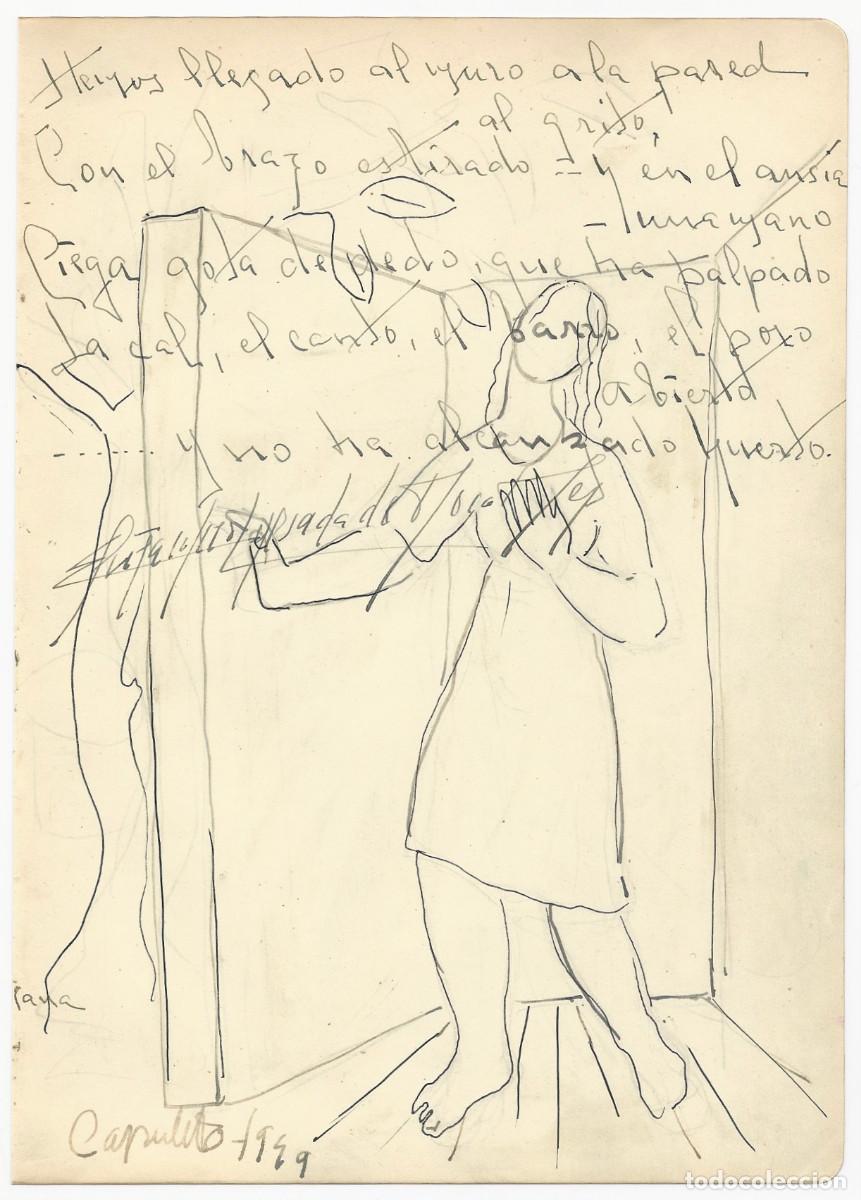 Hemos llegado al muro a la pared
al grito,
Con el brazo estirado = y en el ansia
- inhumano
Ciega gota de dedo, que ha palpado
La cal, el canto, el barro, el pozo
abierto
....... y no ha alcanzado puerto.
de
Capuleto - 1949
todocoleccion